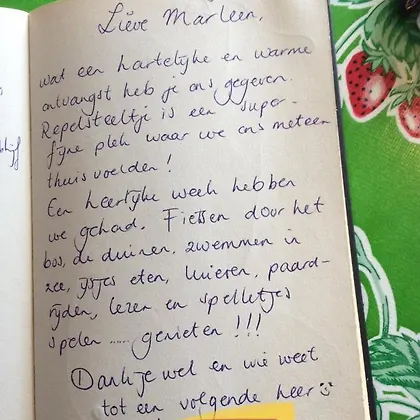 Lieve Marleen,
wat een hartelijke en warme
ontvangst heb je ons gegeven.
Repelsteeltje is een super-
fijne plek waar we ons meteen
thuis voelden!
Een heerlijke week hebben
we gehad. Fietsen door het
bos, de duinen, zwemmen in
zee, ijsjes eten, luieren, paard-
rijden, lezen en spelletjes
spelen ...... genieten !!!
Dankjewel en wie weet
tot een volgende keer